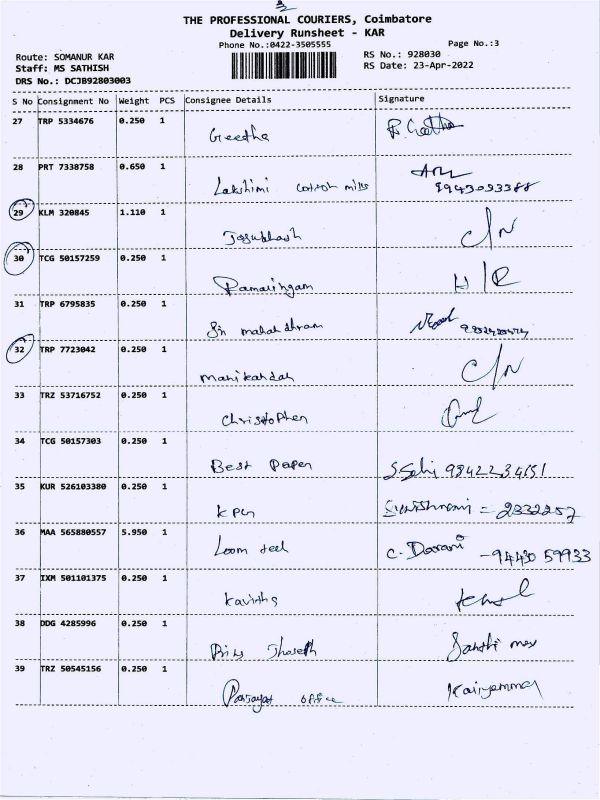 3
THE PROFESSIONAL COURIERS, Coimbatore
Delivery Runsheet - KAR
Phone No.:0422-3505555
Page No.:3
Route: SOMANUR KAR
RS No.: 928030
Staff: MS SATHISH
RS Date: 23-Apr-2022
DRS No.: DCJB92803003
S No Consignment No Weight PCS Consignee Details Signature
27 TRP 5334676 0.250 1 Geetha R. Geetha
28 PRT 7338758 0.650 1 Lakshimi cotton mills 9943093388
29 KLM 320845 1.110 1 C/N
30 TCG 50157259 0.250 1 Ramalingam H/R
31 TRP 6795835 0.250 1 Sri
32 TRP 7723042 0.250 1 Manikandan C/N
33 TRZ 53716752 0.250 1 Christopher
34 TCG 50157303 0.250 1 Best Paper 9842234151
35 KUR 526103380 0.250 1 KPN = 2332257
36 MAA 565880557 5.950 1 Loom C. Darani -9443059933
37 IXM 501101375 0.250 1 Kavitha
38 DDG 4285996 0.250 1
39 TRZ 50545156 0.250 1 office Kariyammal